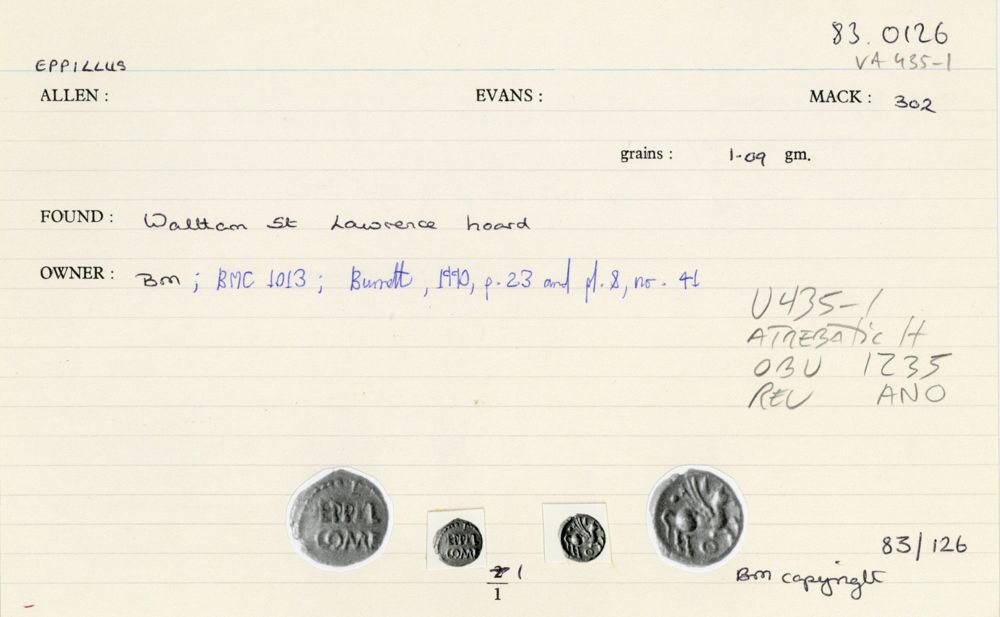 83.0126
EPPILLUS
VA 435-1
ALLEN : EVANS : MACK : 302
grains : 1.09 gm.
FOUND : Waltham St Lawrence hoard
OWNER : BM ; BMC 1013 ; Burnett, 1990, p. 23 and pl. 8, no. 41
V435-1
ATREBATIC H
OBV 1235
REV ANO
EPPIL
COMF
EPPIL
COMF
83/126
2 1
1
BM copyright